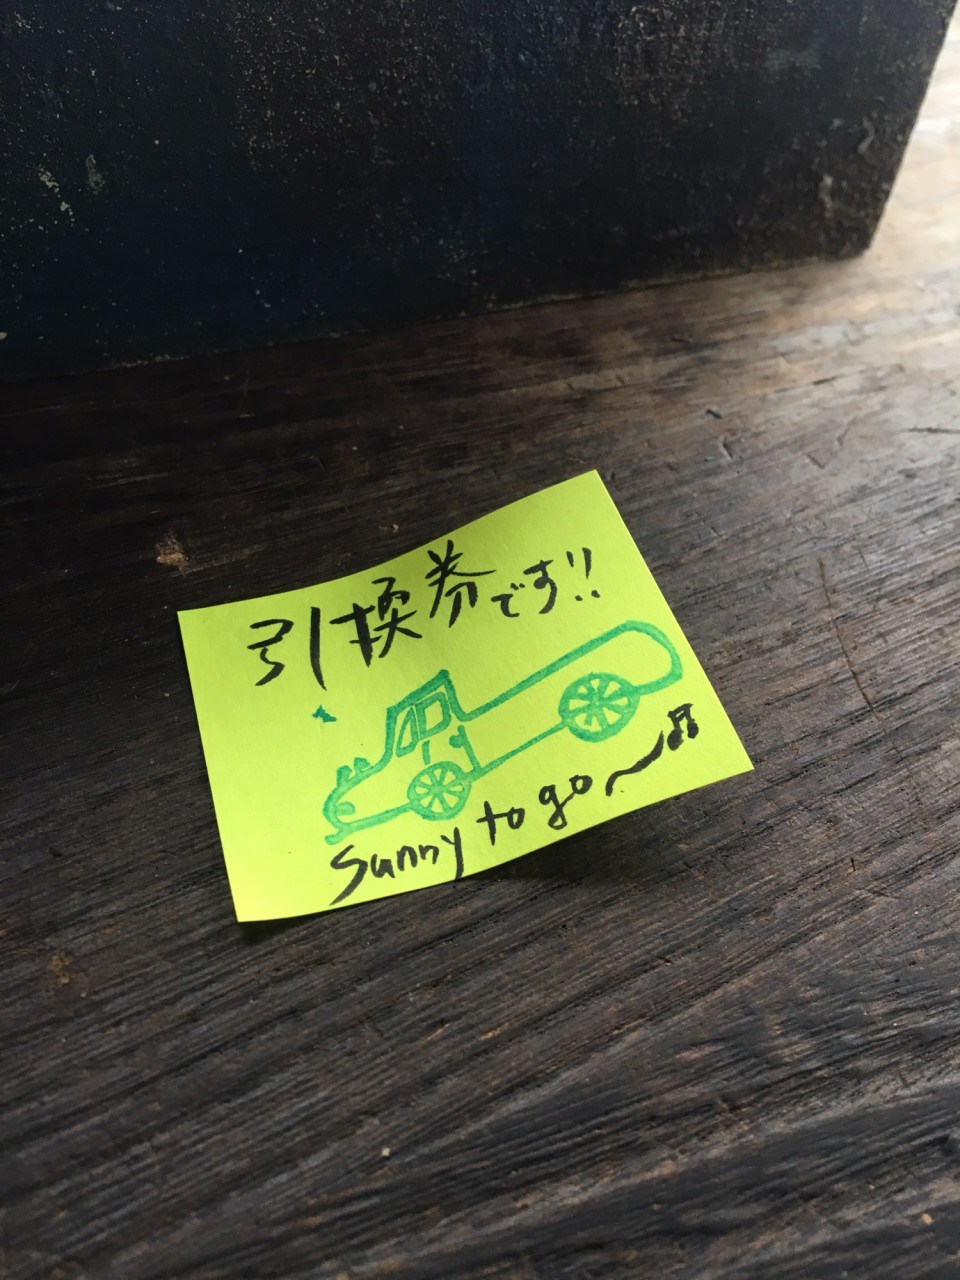 引換券です!!
Sunny to go〜♫